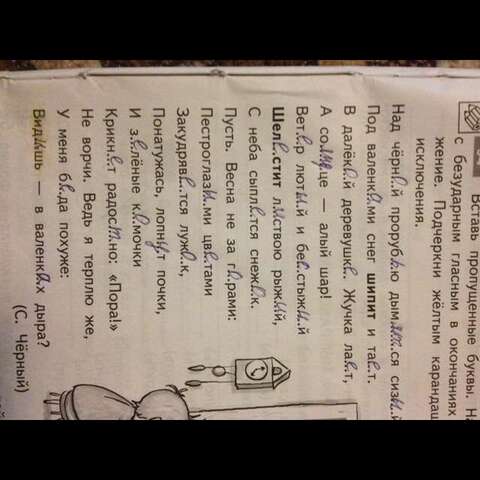 Вставь пропущенные буквы.
с безударным гласным в окончаниях
жение. Подчеркни жёлтым
исключения.
Над чёрной прорубью дымится
Под валенками снег шипит и тает.
В далёкой деревушке. Жучка лает,
А солнце — алый шар!
Ветер лютый и бесстыжий
Шелестит листвою рыжий,
С неба сыплется снежок.
Пусть. Весна не за горами:
Пестроглазыми цветами
Закудрявится лужок,
Понатужась, лопнут почки,
И зелёные комочки
Крикнут радостно: «Пора!»
Не ворчи. Ведь я терплю же,
У меня беда похуже:
Видишь — в валенках дыра?
(С. Чёрный)